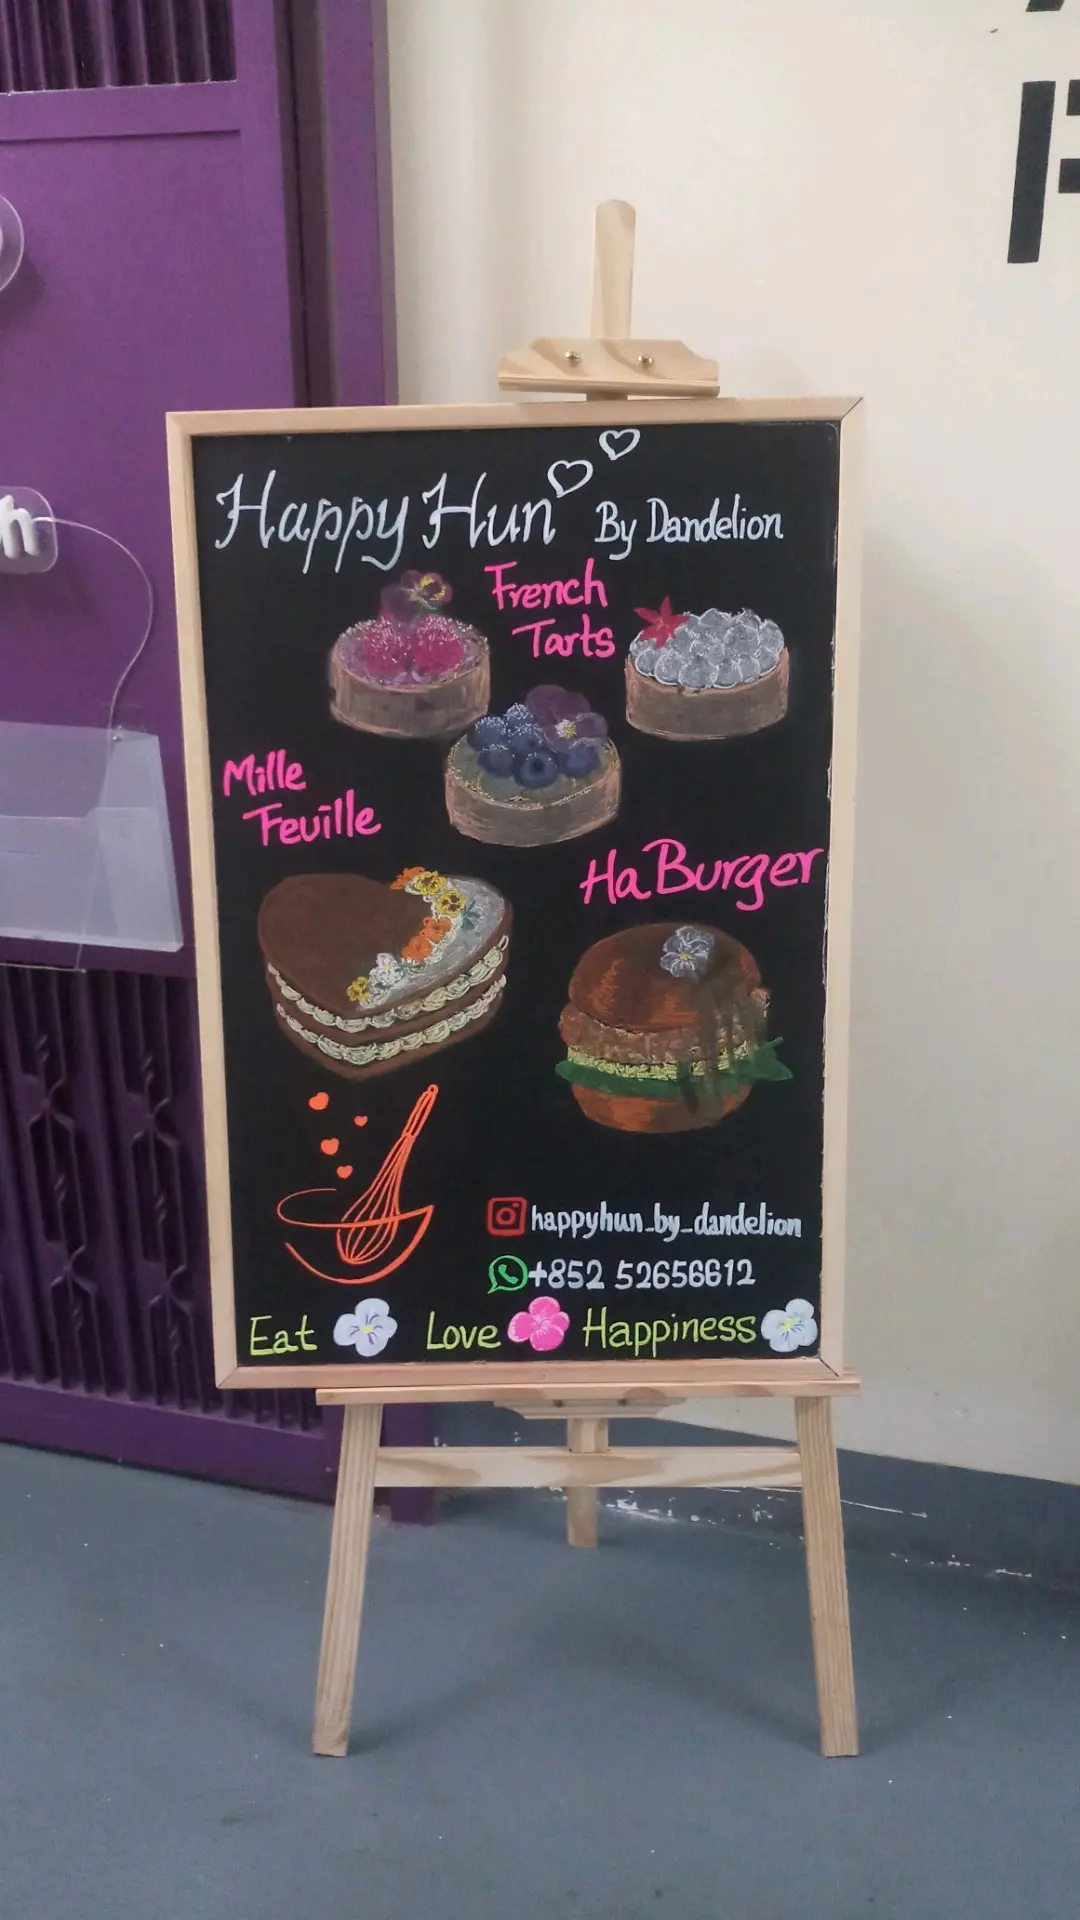 Happy Hun By Dandelion
French
Tarts
Mille
Feuille
Ha Burger
happyhun_by_dandelion
+852 52656612
Eat Love Happiness